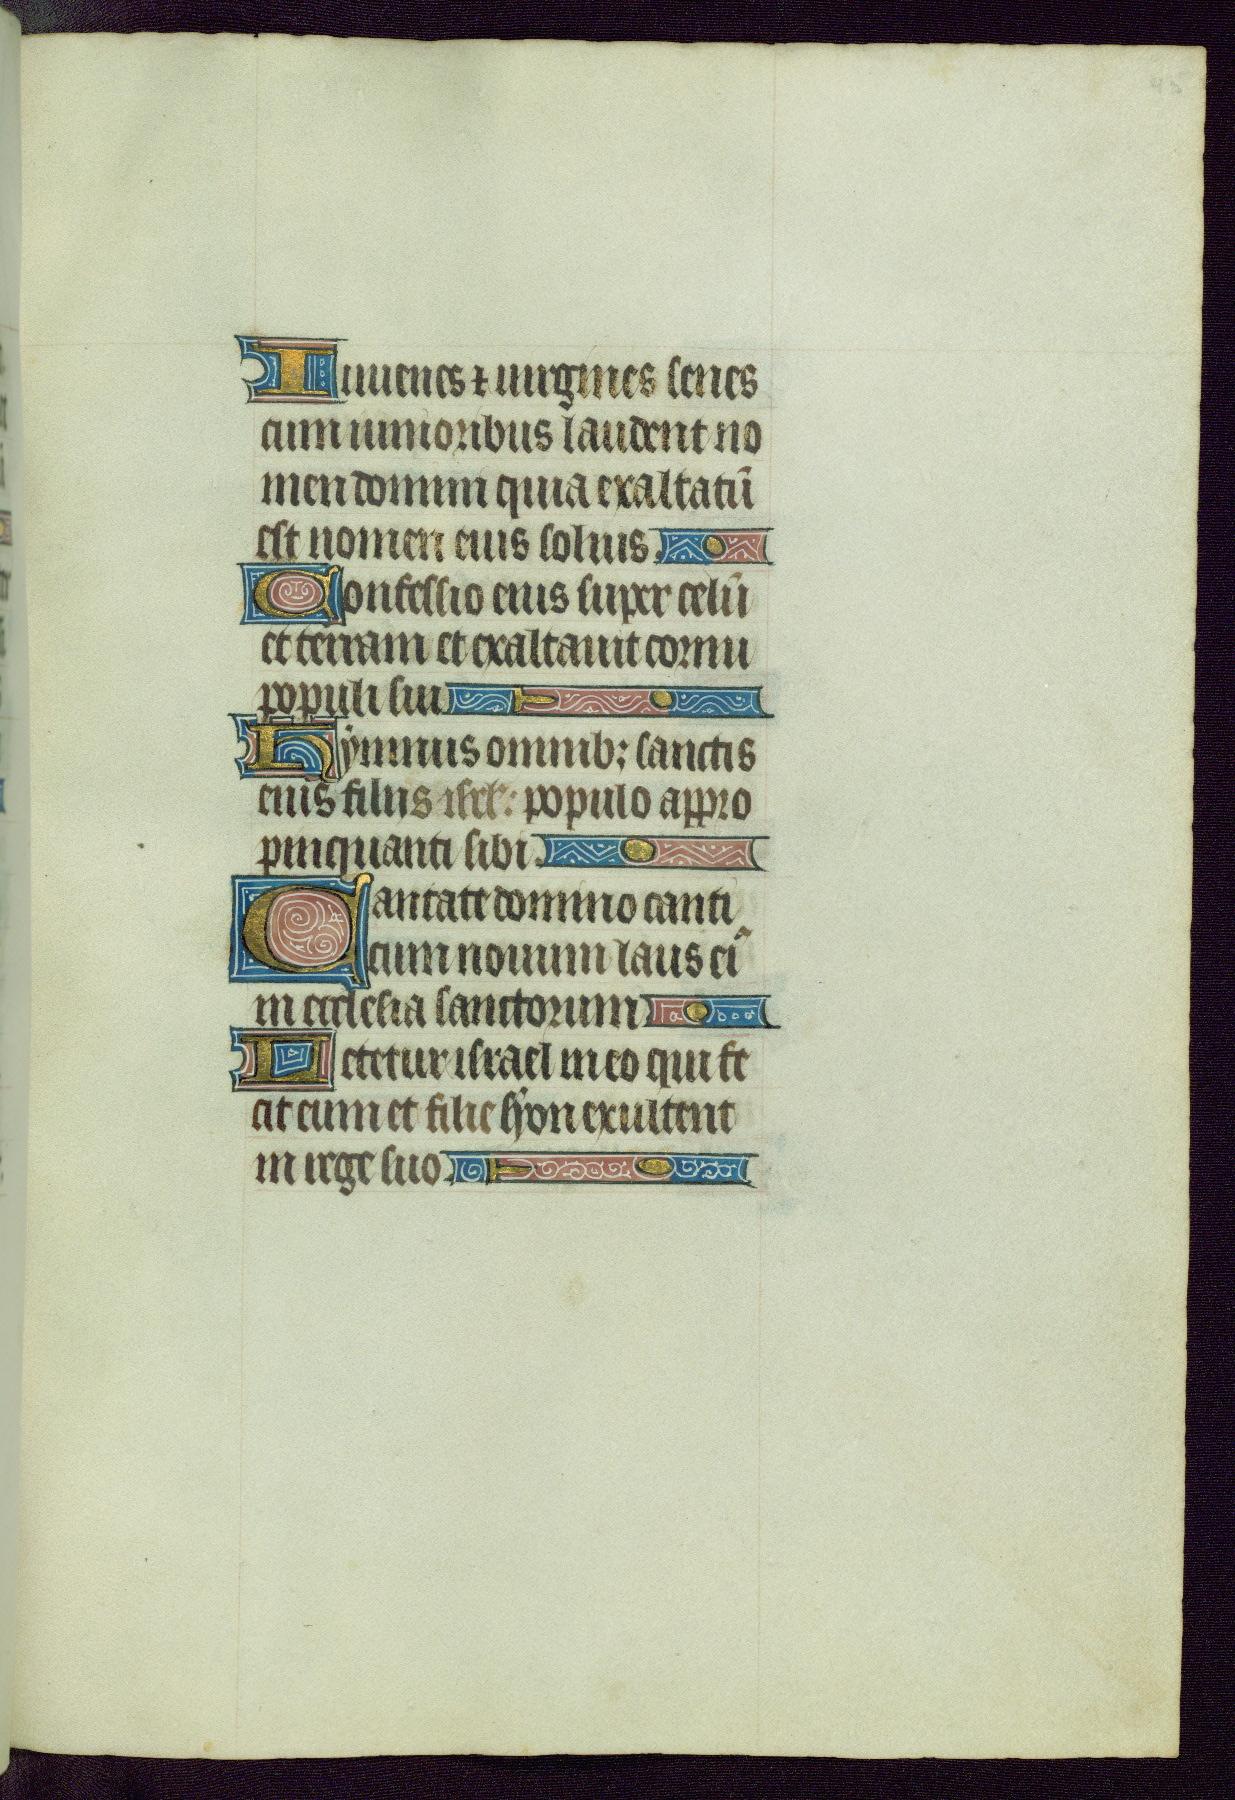 Iuuenes ⁊ uirgines senes
cum iunioribus laudent no
men domini quia exaltatū
est nomen eius solius.
Confessio eius super celū
et terram et exaltauit cornu
populi sui
Hymnus omnib; sanctis
eius filiis isrl': populo appro
pinquanti sibi.
Cantate domino canti
cum nouum laus ei᾽
in ecclesia sanctorum
Letetur israel in eo qui fe
cit eum et filie syon exultent
in rege suo.